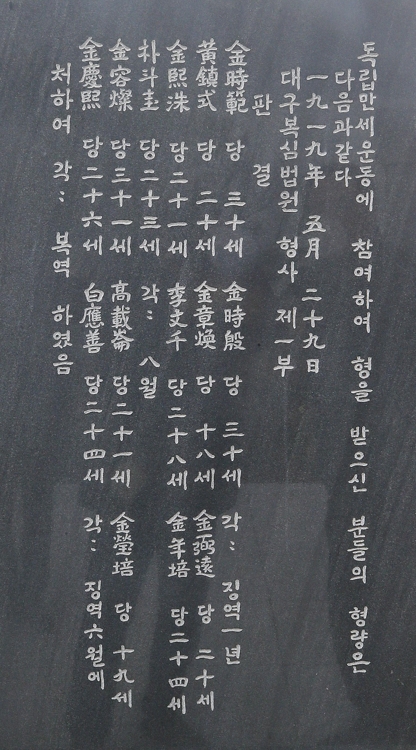 독립만세운동에 참여하여 형을 받으신 분들의 형량은
다음과같다
一九一九年 五月 二十九日
대구복심법원 형사 제一부
판 결
金時範 당 三十세 金時殷 당 三十세 각: 징역一년
黃鎮式 당 二十세 金章煥 당 十八세 金弼遠 당 二十세
金熙洙 당二十一세 李文千 당二十八세 金年培 당二十四세
朴斗圭 당二十三세 각: 八월
金容燦 당三十一세 高載崙 당二十一세 金瑩培 당 十九세
金慶熙 당二十六세 白應善 당二十四세 각: 징역六월에
처하여 각: 복역 하였음